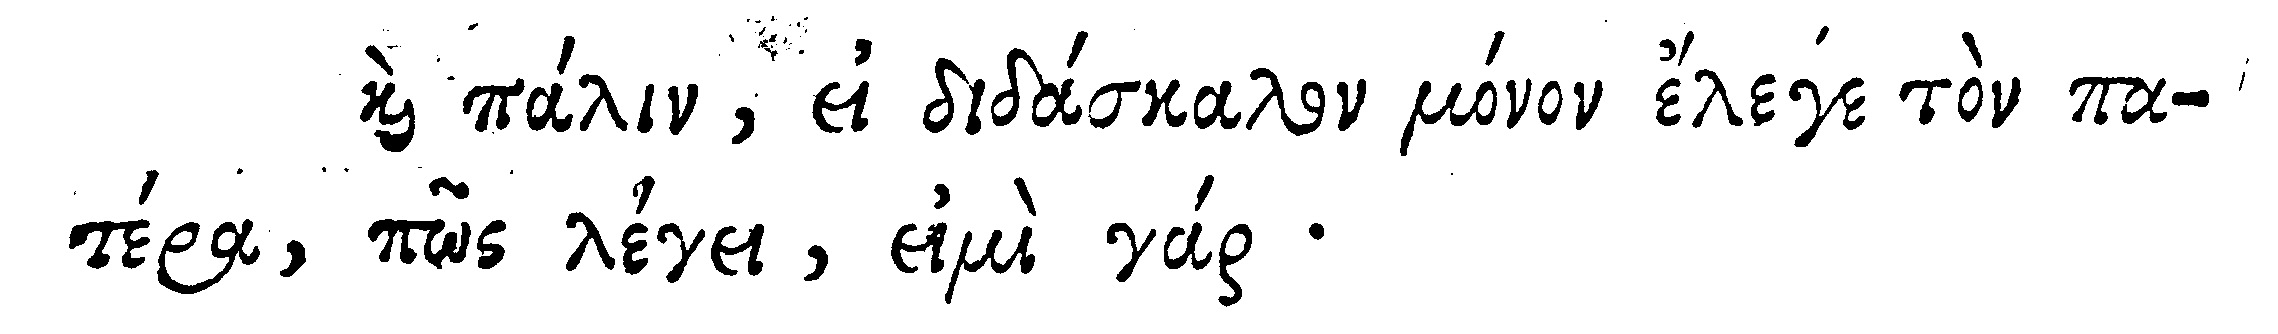 ϗ̀ πάλιν, εἰ διδάσκαλον μόνον ἔλεγε τὸν πα-
τέρα, πῶς λέγει, εἰμὶ γάρ.